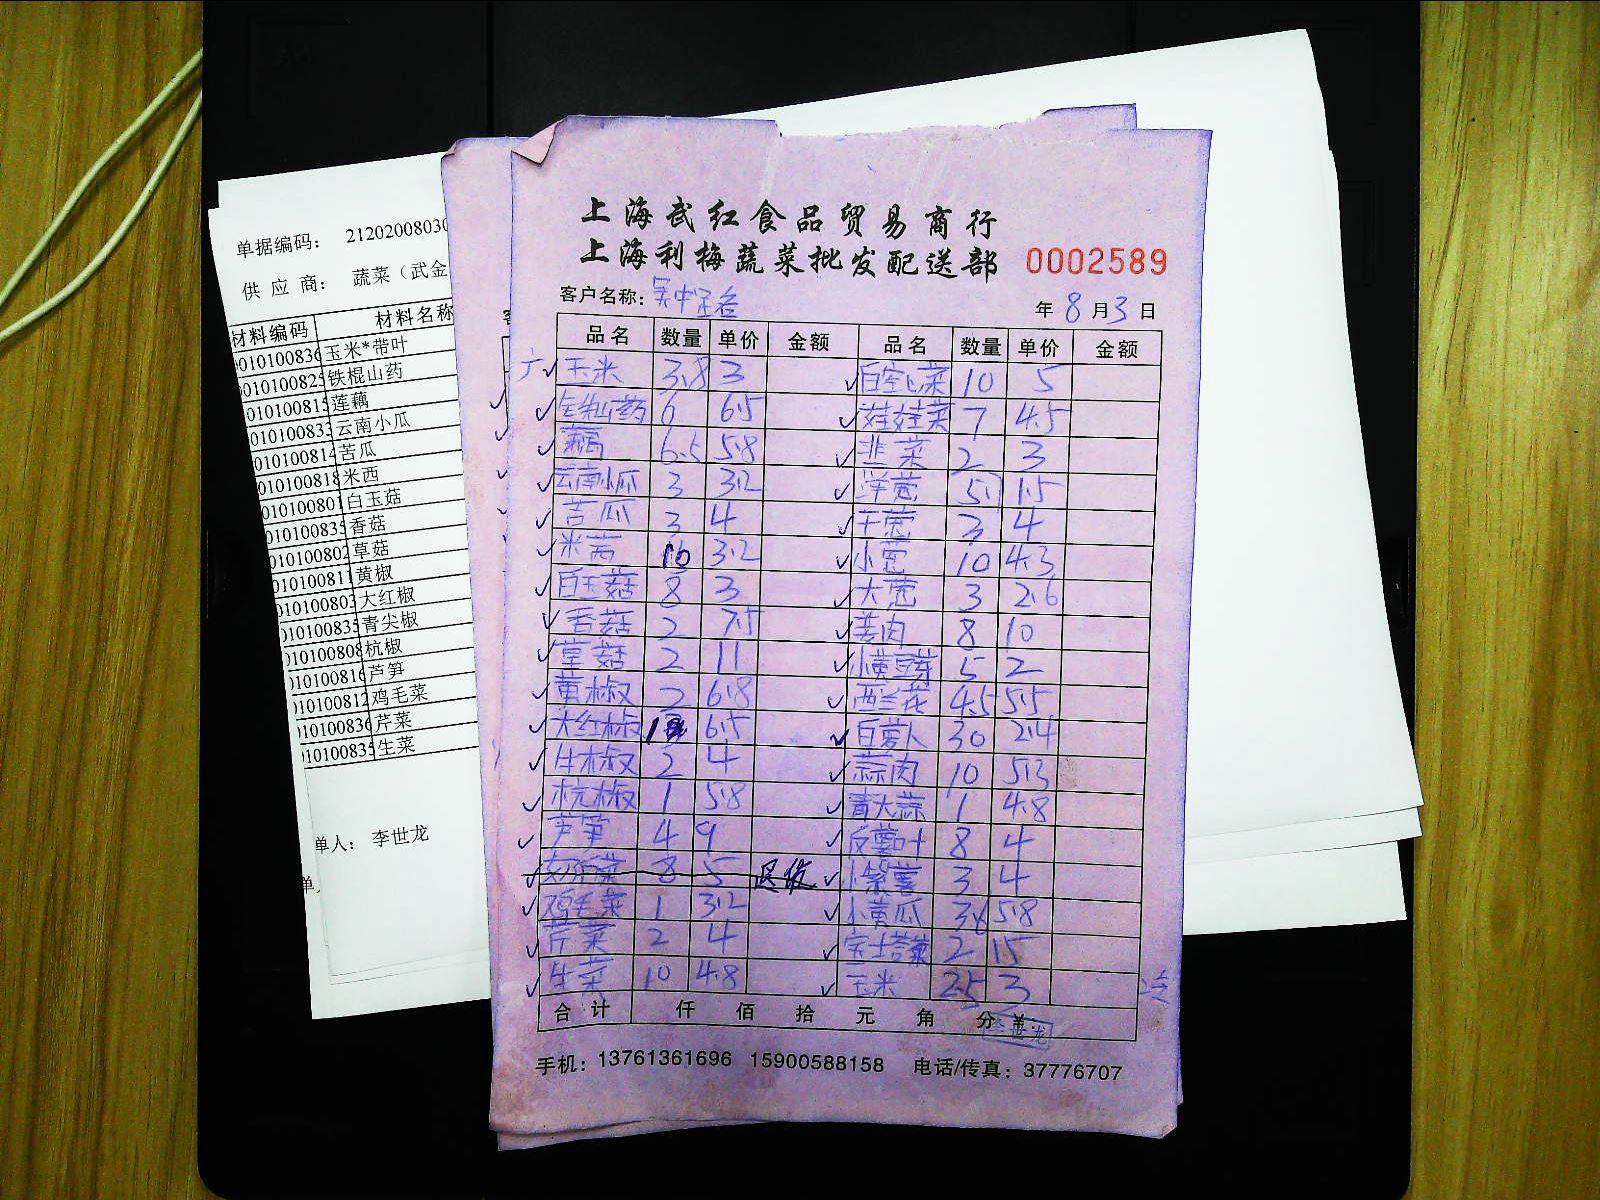 单据编码： 21202008030
供 应 商： 蔬菜（武金
材料编码 材料名称
0101008036 玉米*带叶
010100825 铁棍山药
010100815 莲藕
010100833 云南小瓜
010100814 苦瓜
010100818 米西
010100801 白玉菇
010100835 香菇
010100802 草菇
010100811 黄椒
010100803 大红椒
010100835 青尖椒
010100808 杭椒
010100816 芦笋
010100812 鸡毛菜
010100836 芹菜
010100835 生菜
单人： 李世龙
单
上海武红食品贸易商行
上海利梅蔬菜批发配送部 0002589
客户名称： 年 8 月 3 日
品名 数量 单价 金额 品名 数量 单价 金额
玉米 3.8 3 白空心菜 10 5
铁山药 6 6.5 娃娃菜 7 4.5
藕 6.5 5.8 韭菜 2 3
云南小瓜 3 3.2 洋葱 5 1.5
苦瓜 3 4 干葱 3 4
米苋 10 3.2 小葱 10 4.3
白玉菇 8 3 大葱 3 2.6
香菇 2 7.5 姜肉 8 10
草菇 2 11 小黄豆芽 5 2
黄椒 2 6.8 西兰花 4.5 5.5
大红椒 6.5 白萝卜 30 2.4
牛椒 2 4 蒜肉 10 5.3
杭椒 1 5.8 青大蒜 1 4.8
芦笋 4 9 叶 8 4
菜 8 5 退货 小紫薯 3 4
鸡毛菜 1 3.2 小黄瓜 3.6 5.8
芹菜 2 4 宝塔菜 2 15
生菜 10 4.8 玉米 25 3
合计 仟 佰 拾 元 角 分
手机：13761361696 15900588158 电话/传真：37776707